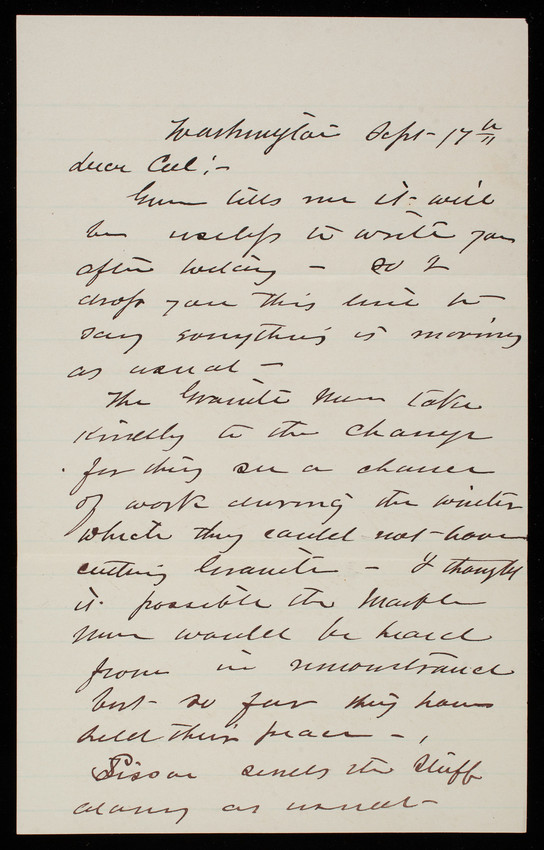 Washington Sept- 17th
dear Col:-
Green tells me it will
be useless to write you
after today - so I
drop you this line to
say everything is moving
as usual -
The Granite Men take
kindly to the change
for they see a chance
of work during the winter
which they could not have
cutting Granite - I thought
it possible the Marble
Men would be heard
from in remonstrance
but so far they have
held their peace -
Sisson sends the stuff
along as usual -